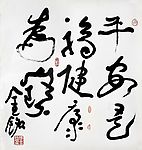 平安是
福健康
為寶
金